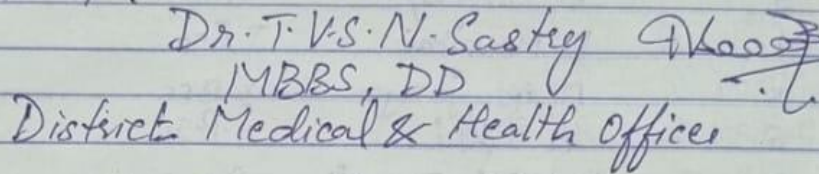 Dr. T. V.S. N. Sastry
MBBS, DD
District Medical & Health Officer